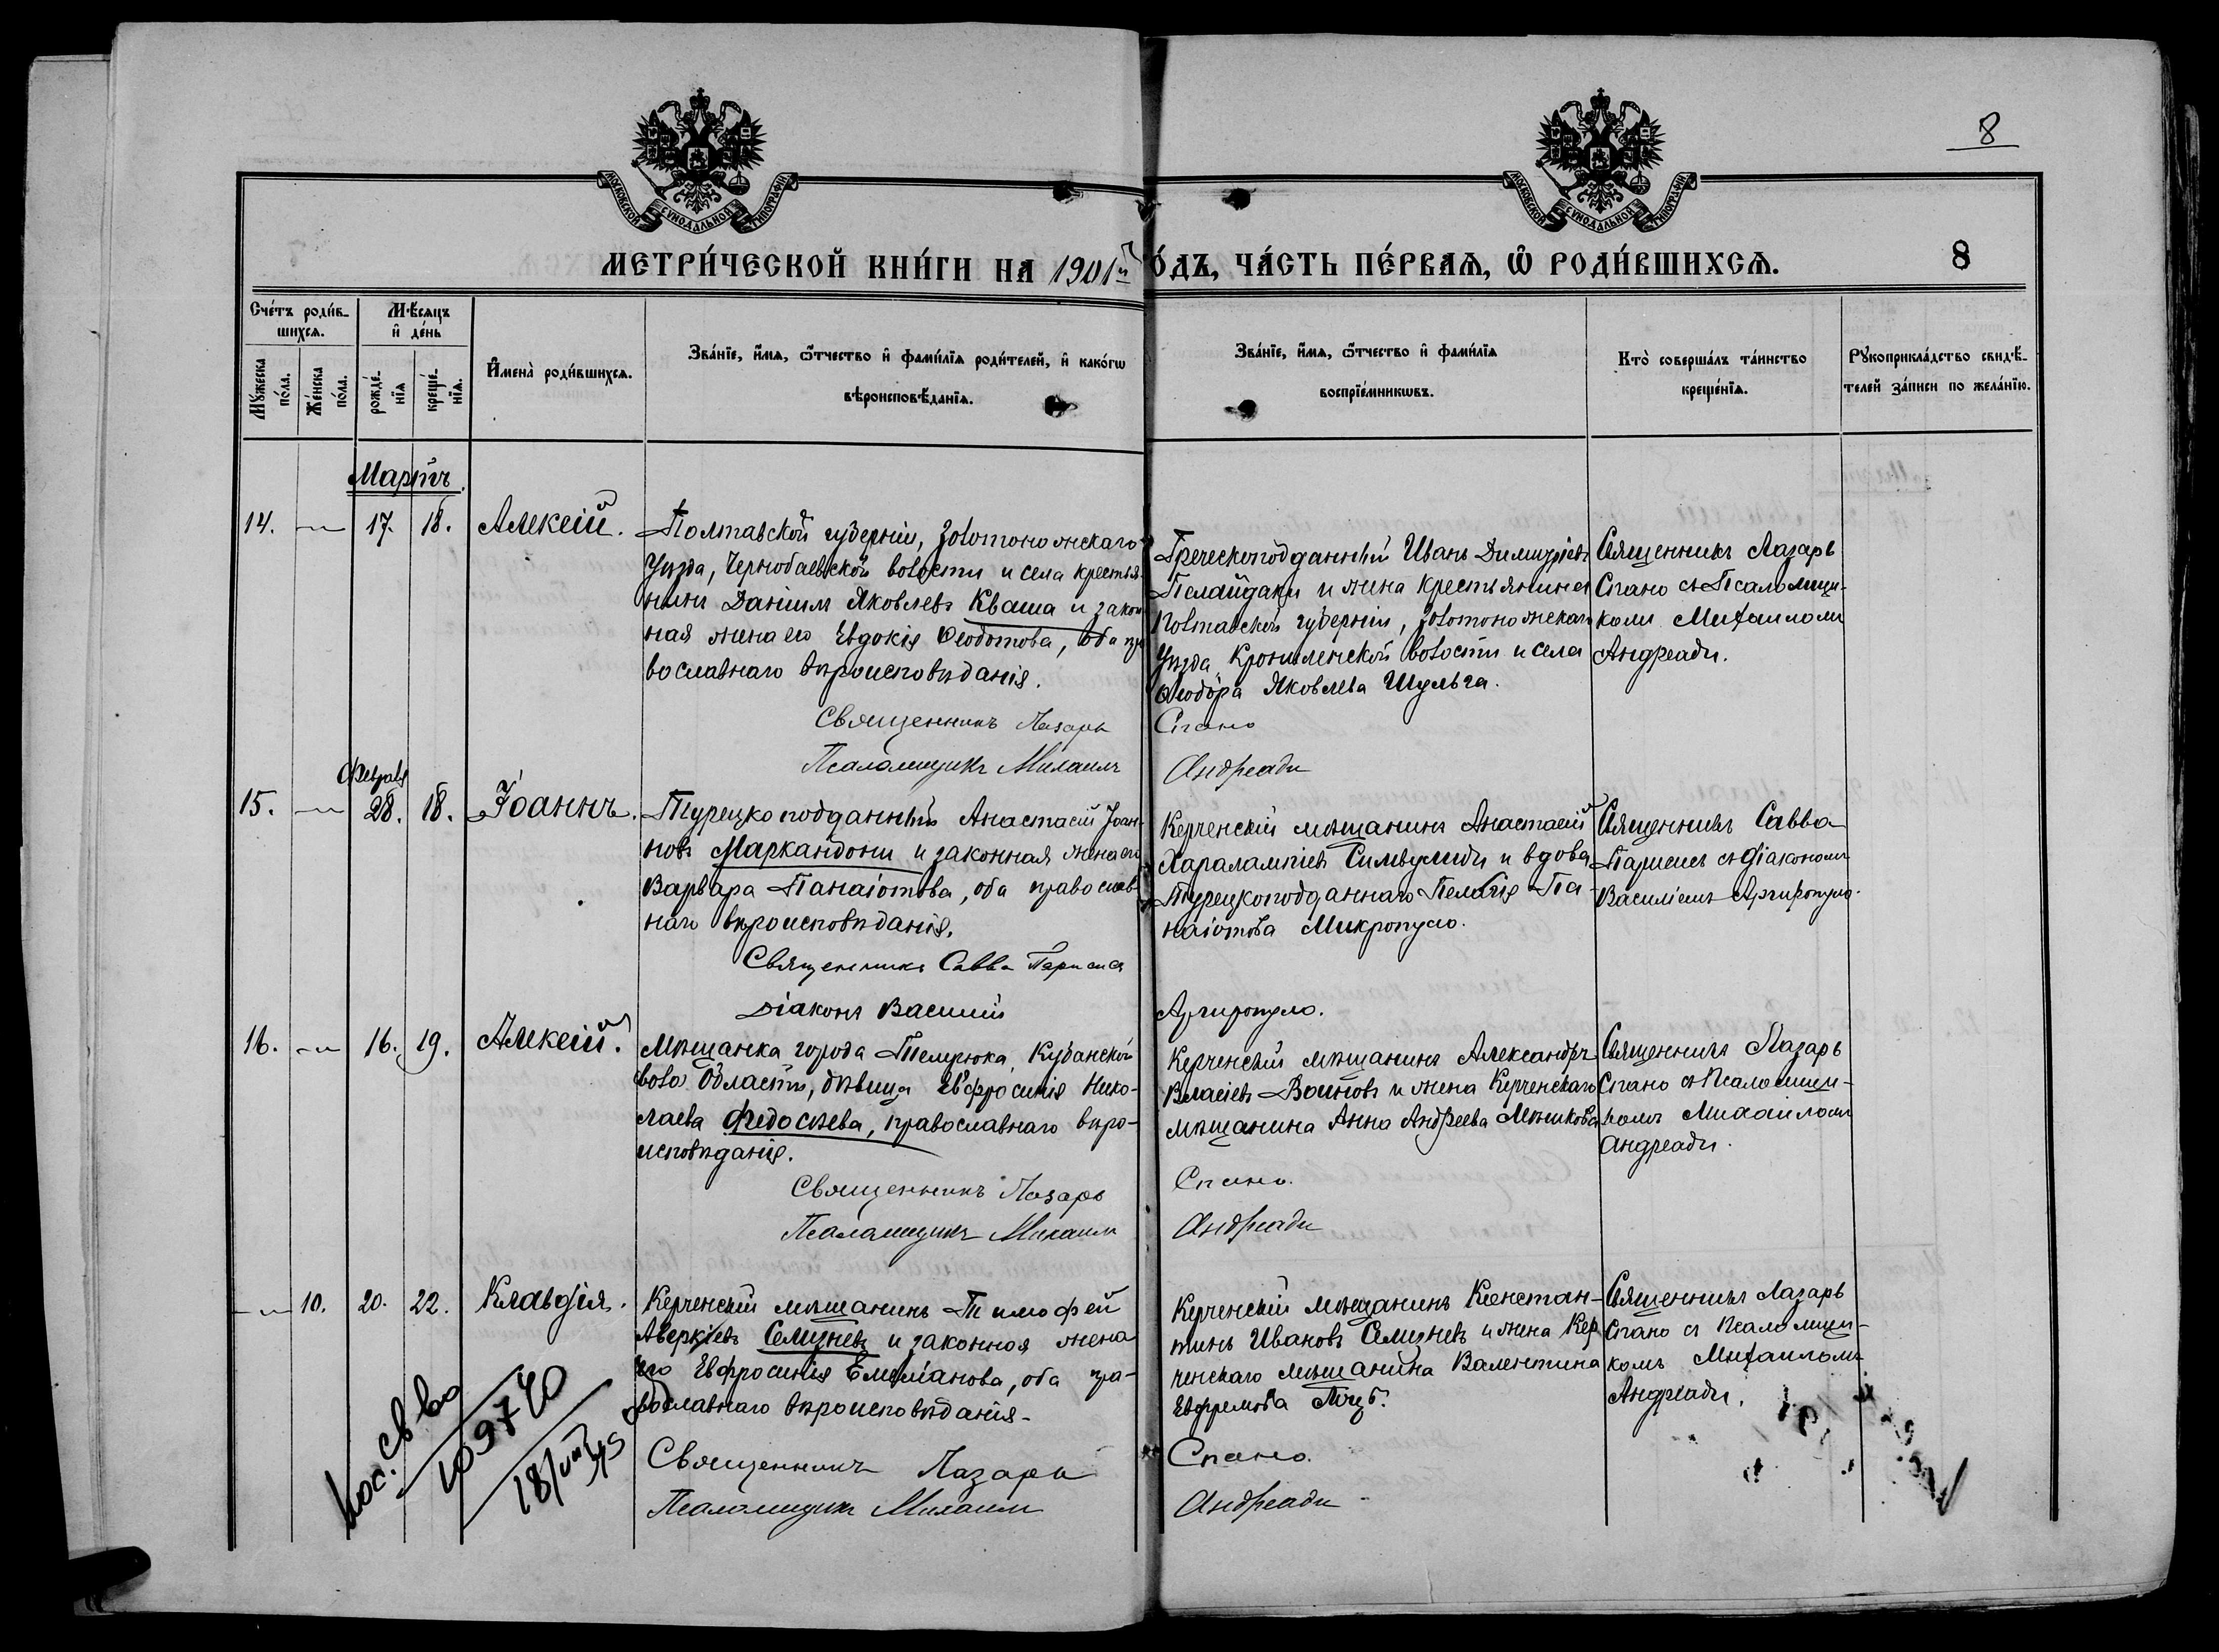 8
МОСКОВСКОЙ СѴНОДАЛЬНОЙ ТИПОГРАФІИ
МОСКОВСКОЙ СѴНОДАЛЬНОЙ ТИПОГРАФІИ
МЕТРИ́ЧЕСКОЙ КНИ́ГИ НА 1901й Г О́ДЪ, ЧА́СТЬ ПЕ́РВАѦ, Ѡ РОДИ́ВШИХСѦ. 8
Сче́тъ роди́в-
шихсѧ.
Мꙋ́жеска
по́ла.
Же́нска
по́ла.
Мѣ́сяцъ
и҆ де́нь
рожде́-
нїѧ
креще́-
нїѧ.
И҆мена̀ роди́вшихсѧ.
Зва́нїе, и҆́мѧ, ѻ҆́тчество и҆ фами́лїѧ роди́телей, и҆ како́гѡ
вѣроисповѣ́данїѧ.
Зва́нїе, и҆́мѧ, ѻ҆́тчество и҆ фами́лїѧ
воспрїе́мникѡвъ.
Кто̀ соверша́лъ та́инство
креще́нїѧ.
Рꙋкоприкла́дство свидѣ́-
телей за́писи по жела́нїю.
Мартъ.
14. — 17. 18. Алексій.
Полтавской губерніи, Золотоношскаго
Уѣзда, Чернобаевской волости и села крестья-
нинъ Даніилъ Яковлевъ Кваша и закон
ная жена его Евдокія Ѳеодотова, оба пра
вославнаго вѣроисповѣданія.
Священникъ Лазарь Спано
Псаломщикъ Михаилъ Андреади
Греческоподданный Иванъ Димитріевъ
Пелайдаки и жена крестьянина
Полтавской губерніи, Золотоношскаго
Уѣзда Кропивенской волости и села
Ѳеодора Яковлева Шульга.
Священникъ Лазарь
Спано съ Псаломщи-
комъ Михаиломъ
Андреади.
Февраля
15. — 28. 18. Іоаннъ.
Турецкоподданный Анастасій Іоан-
новъ Маркандони и законная жена его
Варвара Панаіотова, оба православ-
наго вѣроисповѣданія.
Священникъ Савва
Діаконъ Василій Аргиропуло.
Керченскій мѣщанинъ Анастасій
Харалампіевъ Симвулиди и вдова
Турецкоподданнаго Пелагія Па-
наіотова Микропуло.
Священникъ Савва
съ діакономъ
Василіемъ Аргиропуло.
16. — 16. 19. Алексій.
Мѣщанка города Темрюка, Кубанской
Области, дѣвица Евфросинія Нико-
лаева Федосѣева, православнаго вѣро-
исповѣданія.
Священникъ Лазарь Спано.
Псаломщикъ Михаилъ Андреади
Керченскій мѣщанинъ Александръ
Власіевъ Воиновъ и жена Керченскаго
мѣщанина Анна Андреева
Священникъ Лазарь
Спано съ Псаломщи-
комъ Михаиломъ
Андреади.
— 10. 20. 22. Клавдія.
Керченскій мѣщанинъ Тимофей
Аверкіевъ Селизневъ и законная жена
его Евфросинія Емеліанова, оба пра-
вославнаго вѣроисповѣданія.
Священникъ Лазарь Спано.
Псаломщикъ Михаилъ Андреади
Керченскій мѣщанинъ Констан-
тинъ Ивановъ Селизневъ и жена Кер
ченскаго мѣщанина Валентина
Евфремова
Священникъ Лазарь
Спано съ Псаломщи-
комъ Михаиломъ
Андреади.